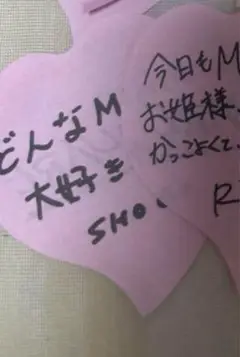 どんなM
大好き
SHO
今日もM
お姫様
かっこよくて
R